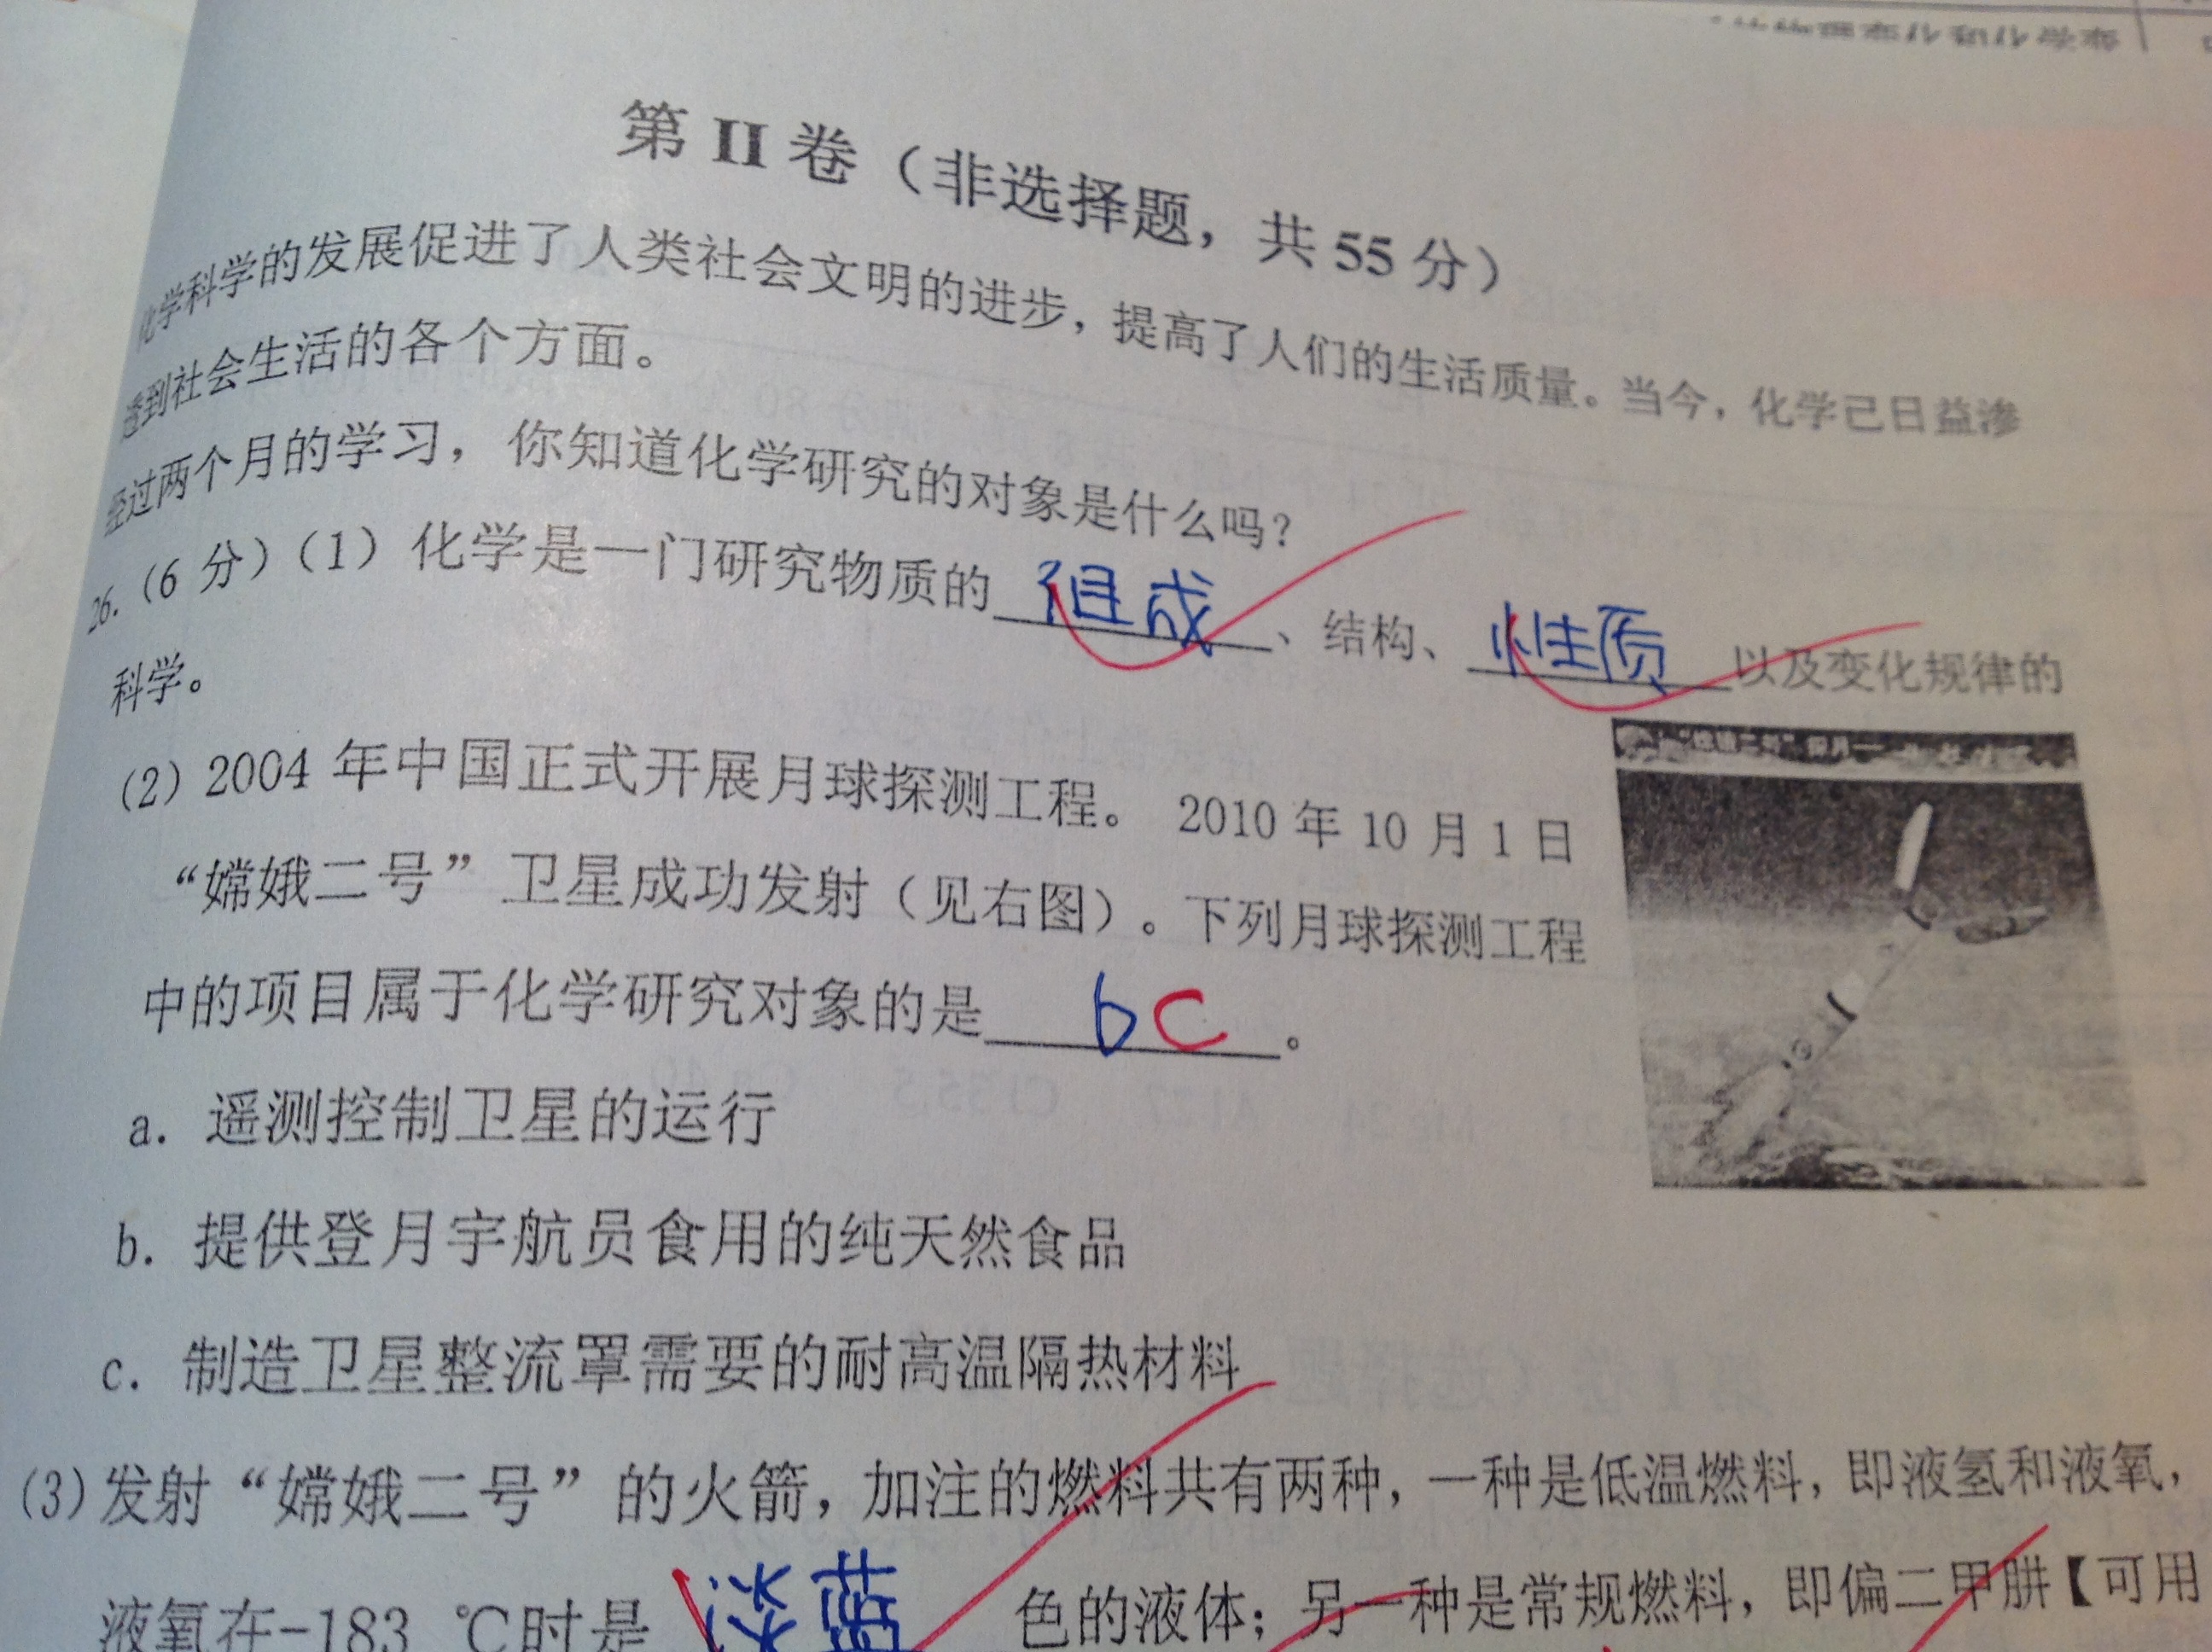 第 II 卷（非选择题，共 55 分）
化学科学的发展促进了人类社会文明的进步，提高了人们的生活质量。当今，化学已日益渗
透到社会生活的各个方面。
经过两个月的学习，你知道化学研究的对象是什么吗？
26.（6 分）（1）化学是一门研究物质的 组成 、结构、 性质 以及变化规律的
科学。
（2）2004 年中国正式开展月球探测工程。 2010 年 10 月 1 日
“嫦娥二号”卫星成功发射（见右图）。下列月球探测工程
中的项目属于化学研究对象的是 bc 。
a. 遥测控制卫星的运行
b. 提供登月宇航员食用的纯天然食品
c. 制造卫星整流罩需要的耐高温隔热材料
（3）发射“嫦娥二号”的火箭，加注的燃料共有两种，一种是低温燃料，即液氢和液氧，
液氧在-183 ℃时是 淡蓝 色的液体；另一种是常规燃料，即偏二甲肼【可用